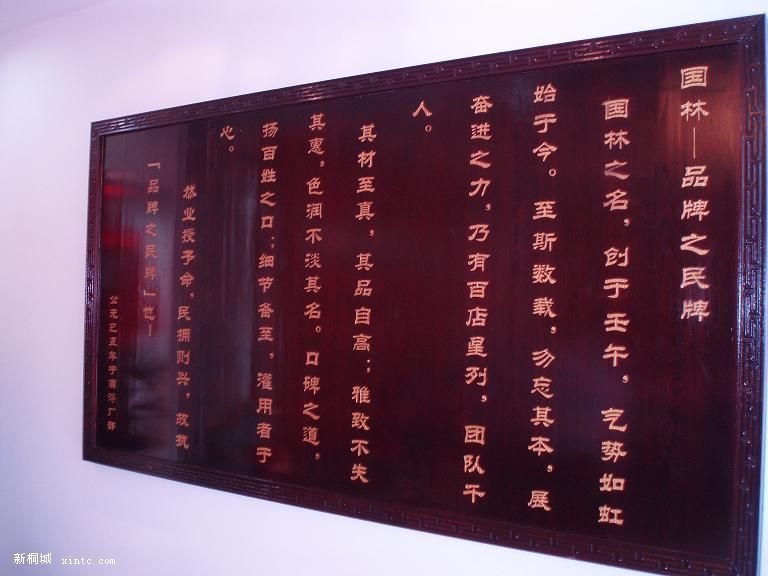 国林—品牌之民牌
国林之名，创于壬午，气势如虹
始于今。至斯数载，勿忘其本，展
奋进之力，乃有百店星列，团队千
人。
其材至真，其品自高；雅致不失
其惠，色润不淡其名。口碑之道，
扬百姓之口；细节备至，濯用者于
心。
然业授予命，民拥则兴，故执
「品牌之民牌」也！
公元己丑年于南浔厂部
新桐城 xintc.com